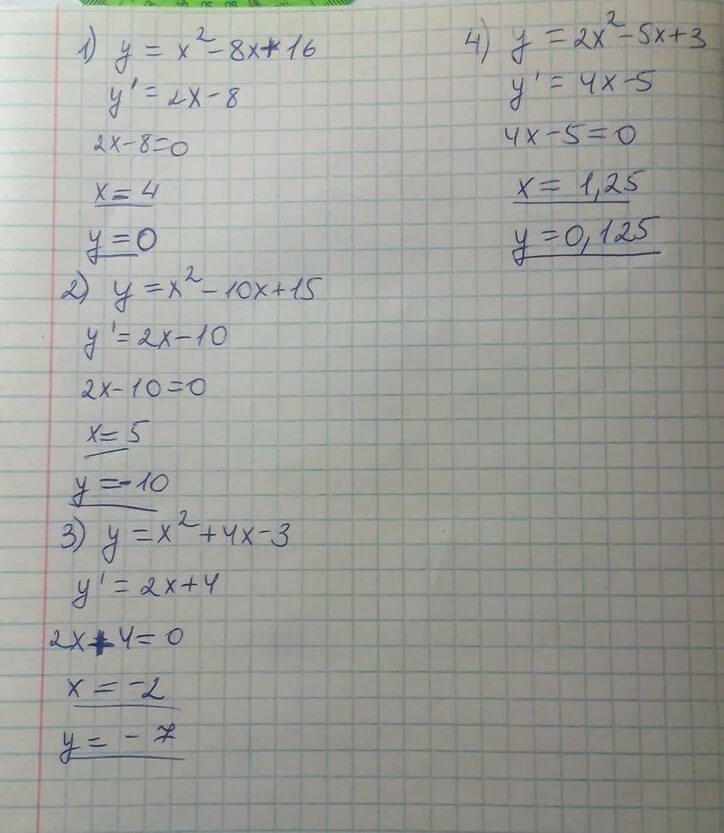 1) y = x² - 8x + 16
y' = 2x - 8
2x - 8 = 0
x = 4
y = 0
2) y = x² - 10x + 15
y' = 2x - 10
2x - 10 = 0
x = 5
y = -10
3) y = x² + 4x - 3
y' = 2x + 4
2x + 4 = 0
x = -2
y = -7
4) y = 2x² - 5x + 3
y' = 4x - 5
4x - 5 = 0
x = 1,25
y = 0,125